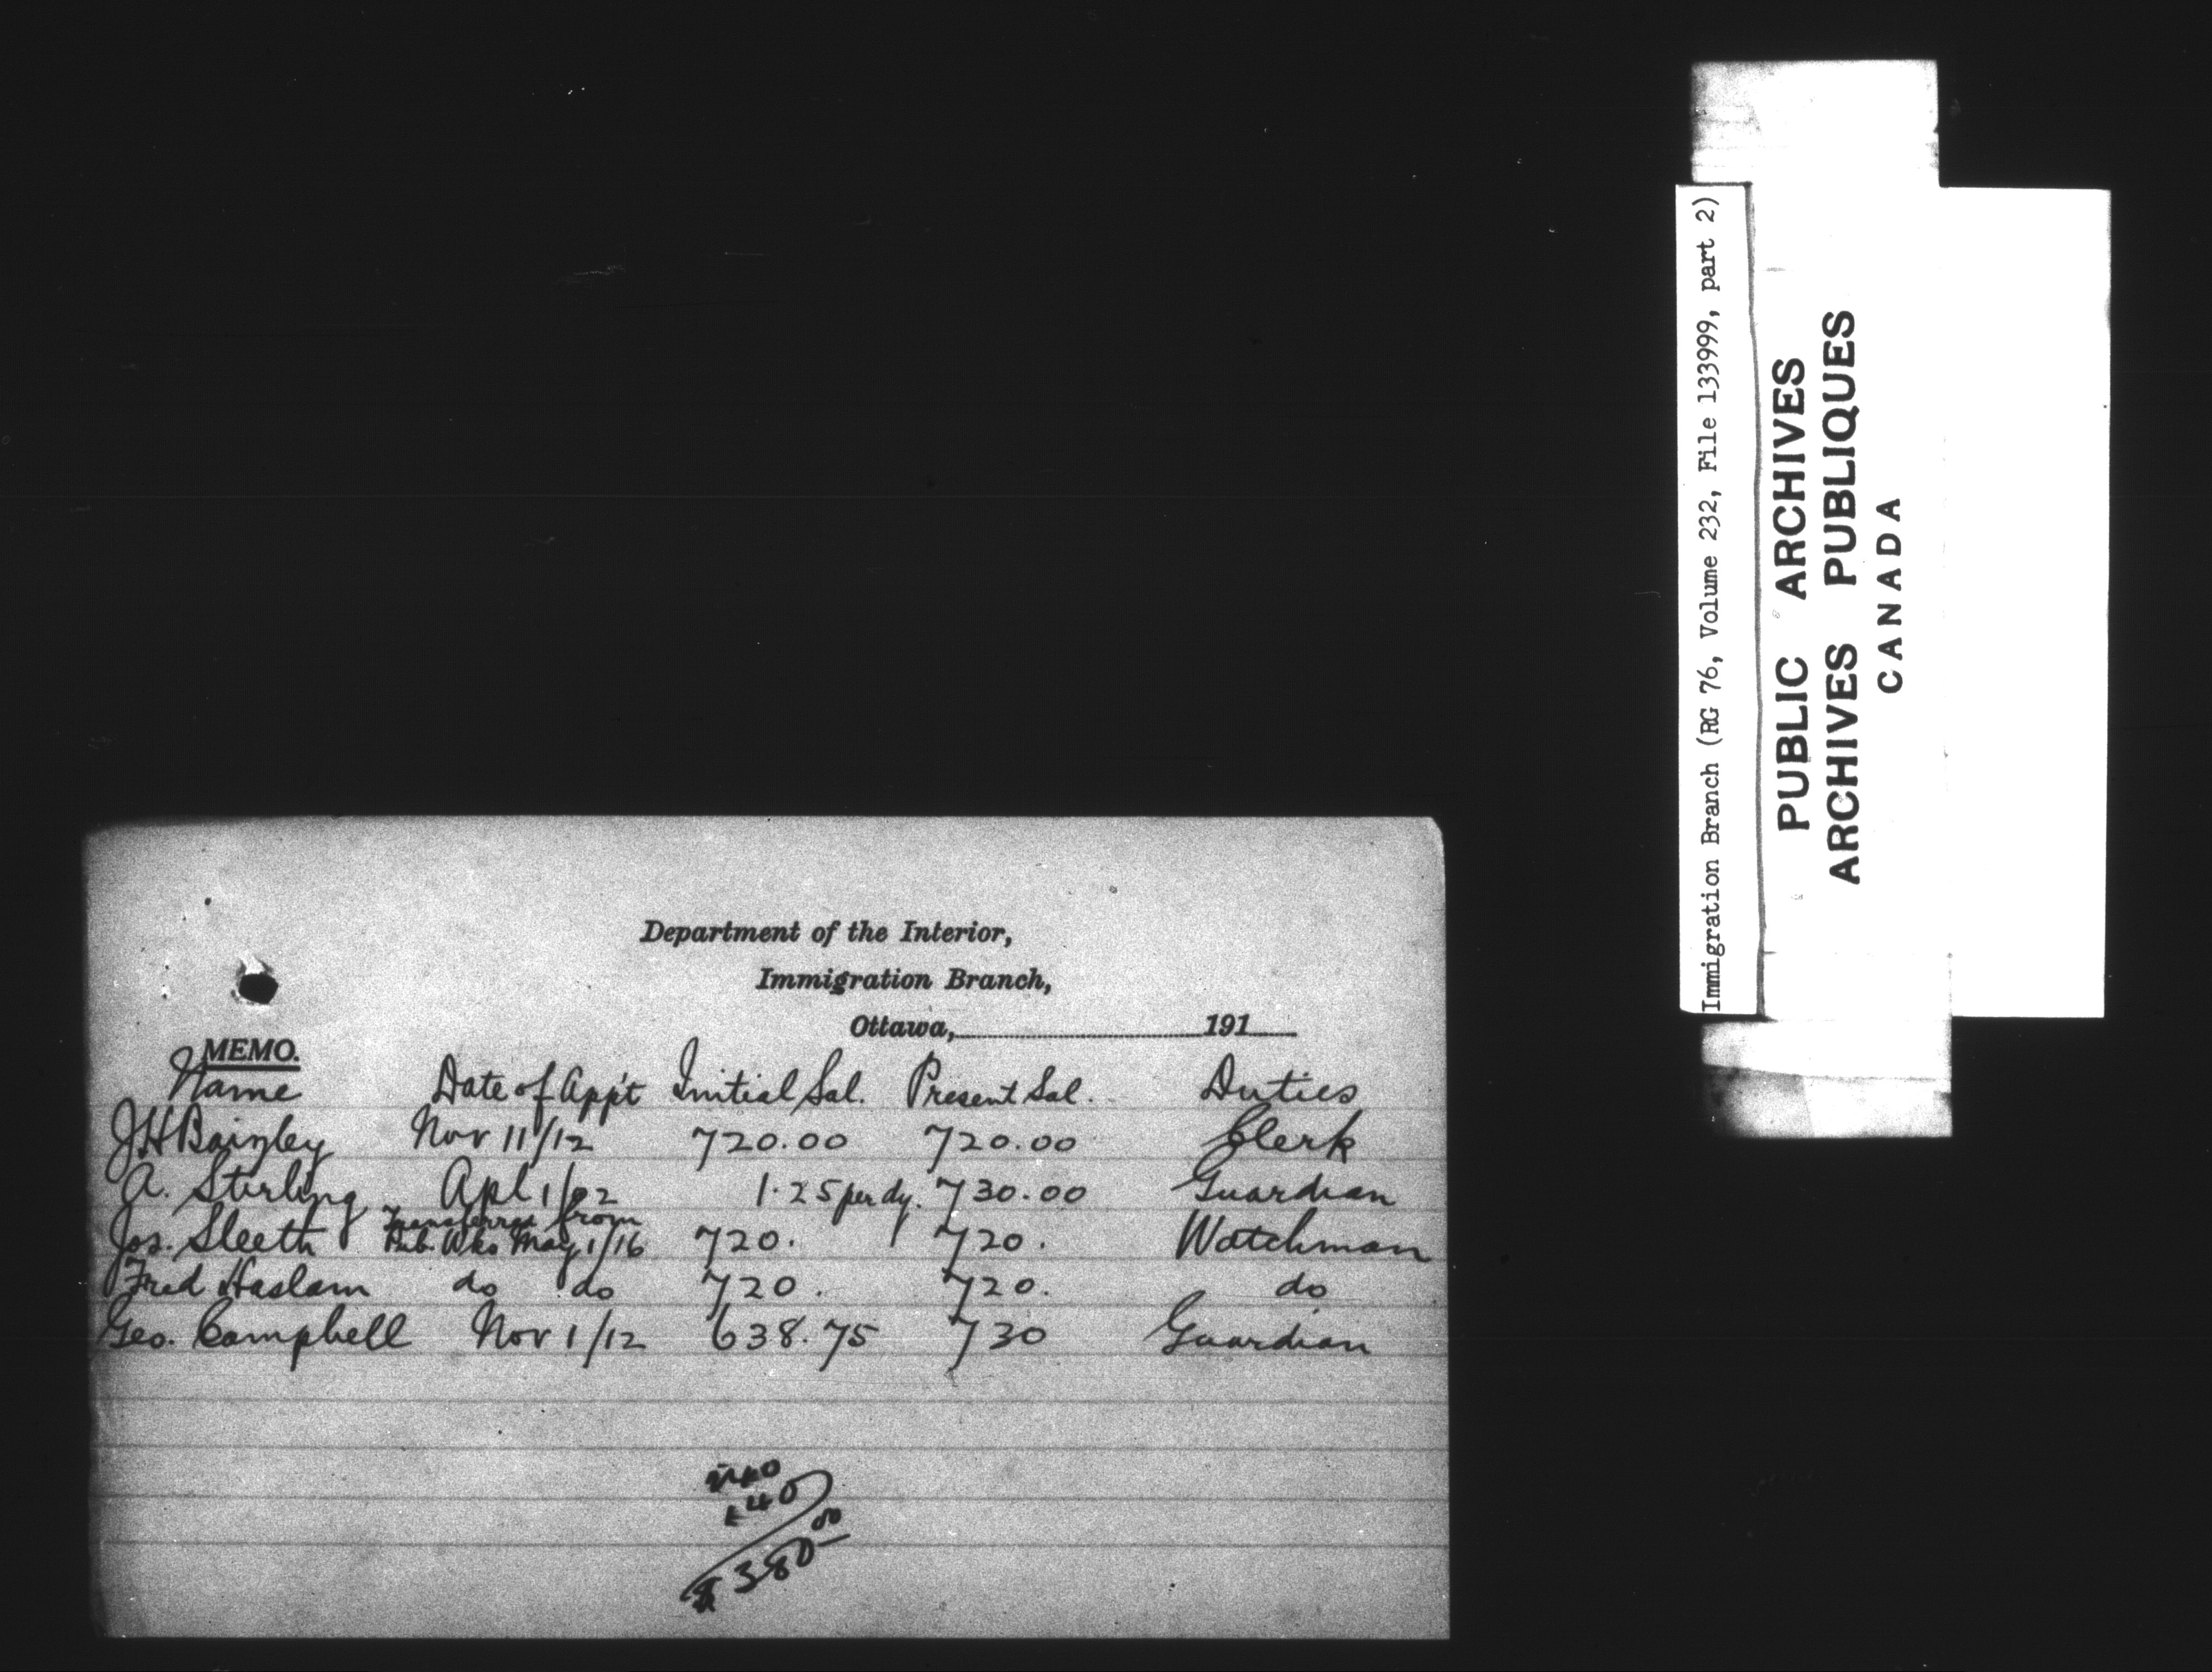 Department of the Interior,
Immigration Branch,
Ottawa, 191
MEMO.
Name Date of App't Initial Sal. Present Sal. Duties
J H Baizley Nov 11/12 720.00 720.00 Clerk
A. Stirling Apl 1/02 1.25 per dy. 730.00 Guardian
Jos. Sleeth Transferred from Pub. Wks May 1/16 720. 720. Watchman
Fred Haslam do do 720. 720. do
Geo. Campbell Nov 1/12 638.75 730 Guardian
40
$ 380 00
Immigration Branch (RG 76, Volume 232, File 133999, part 2)
PUBLIC ARCHIVES
ARCHIVES PUBLIQUES
CANADA